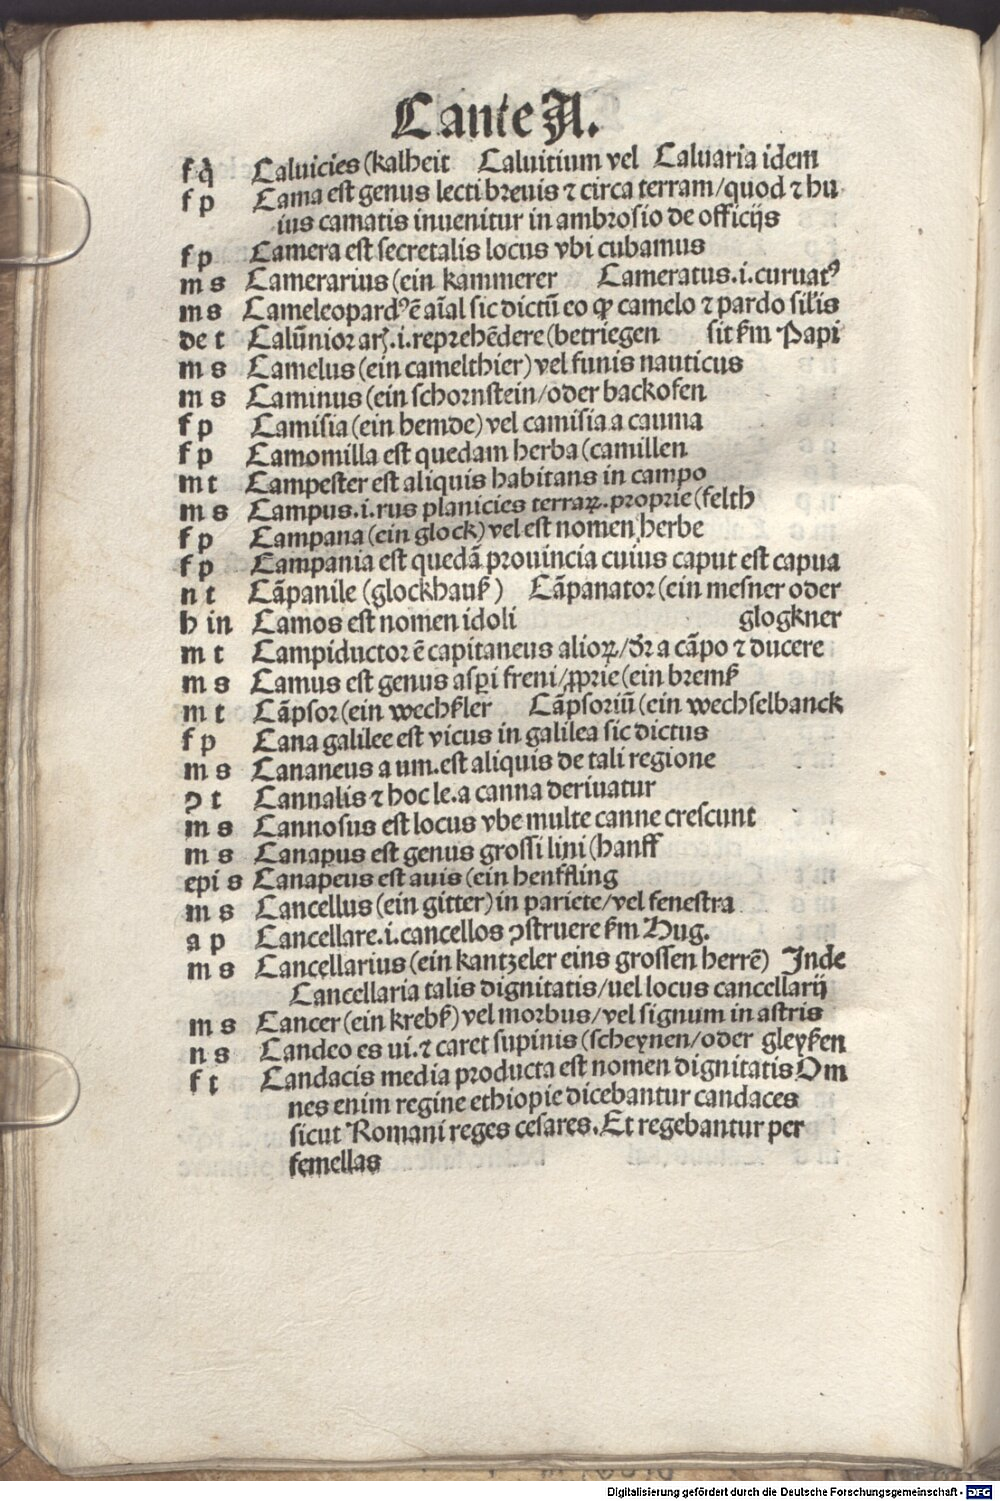 C ante A.
f q̄ Caluicies (kalheit Caluitium vel Caluaria idem
f p Cama est genus lecti breuis ⁊ circa terram/quod ⁊ hu
ius camatis inuenitur in ambrosio de officijs
f p Camera est secretalis locus vbi cubamus
m s Camerarius (ein kammerer Cameratus.i.curuatꝰ
m s Cameleopardꝰ ē aīal sic dictū eo ꝙ camelo ⁊ pardo silis
de t Calūnior arꝭ.i.reprehēdere (betriegen sit ẜm Papi
m s Camelus (ein camelthier) vel funis nauticus
m s Caminus (ein schornstein/oder backofen
f p Camisia (ein hemde) vel camisia a cauma
f p Camomilla est quedam herba (camillen
m t Campester est aliquis habitans in campo
m s Campus.i.rus planicies terraꝝ.proprie (felth
f p Campana (ein glock) vel est nomen herbe
f p Campania est quedā prouincia cuius caput est capua
n t Cāpanile (glockhauß ) Cāpanator (ein mesner oder
h in Camos est nomen idoli glogkner
m t Campiductor ē capitaneus alioꝝ/dr̄ a cāpo ⁊ ducere
m s Camus est genus asꝑi freni/ꝓprie (ein bremß
m t Cāpsor (ein wechßler Cāpsoriū (ein wechselbanck
f p Cana galilee est vicus in galilea sic dictus
m s Cananeus a um.est aliquis de tali regione
ꝯ t Cannalis ⁊ hoc le.a canna deriuatur
m s Cannosus est locus vbe multe canne crescunt
m s Canapus est genus grossi lini (hanff
epi s Canapeus est auis (ein henffling
m s Cancellus (ein gitter) in pariete/vel fenestra
a p Cancellare.i.cancellos ꝯstruere ẜm Hug.
m s Cancellarius (ein kantzeler eins grossen herrē) Inde
Cancellaria talis dignitatis/uel locus cancellarij
m s Cancer (ein krebß) vel morbus/vel signum in astris
n s Candeo es ui.⁊ caret supinis (scheynen/oder gleyßen
f t Candacis media producta est nomen dignitatis Om
nes enim regine ethiopie dicebantur candaces
sicut Romani reges cesares.Et regebantur per
femellas
Digitalisierung gefördert durch die Deutsche Forschungsgemeinschaft - DFG